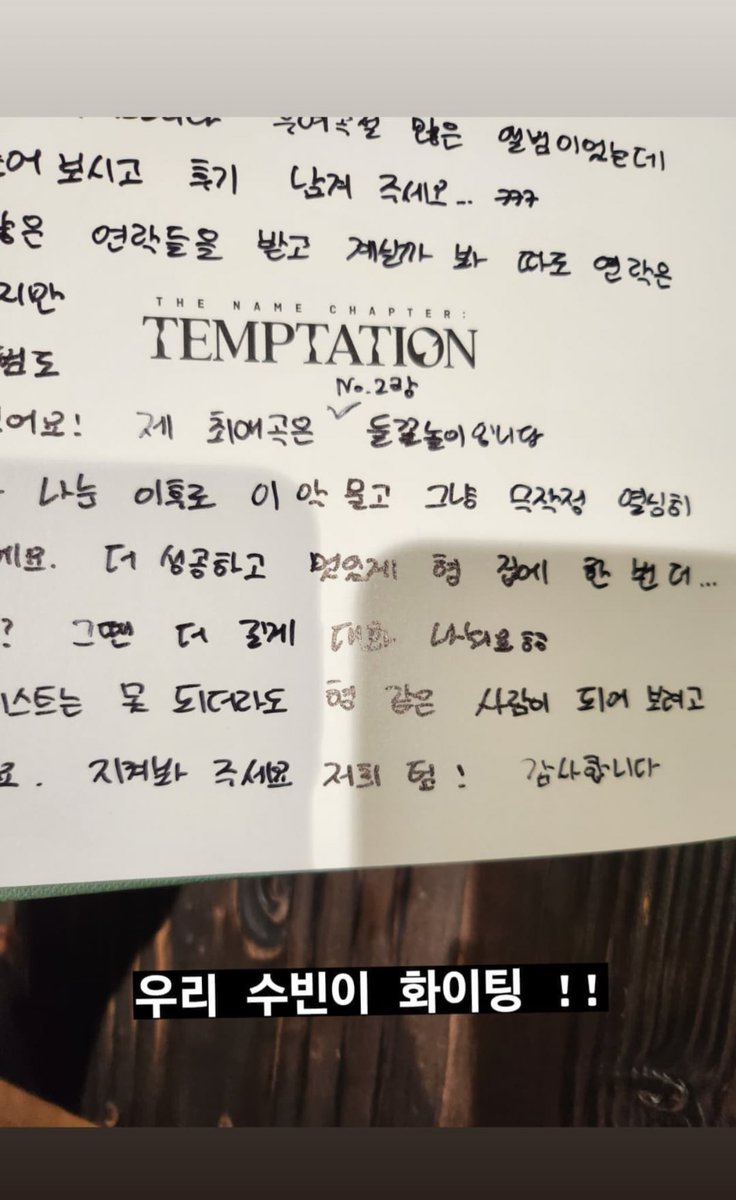 우여곡절 많은 앨범이었는데
보시고 후기 남겨 주세요... ㅋㅋㅋ
많은 연락들을 받고 계실까 봐 따로 연락은
지만
THE NAME CHAPTER:
TEMPTATION
범도
No.2랑
어요! 제 최애곡은 ✓ 들꽃놀이입니다
나눈 이후로 이 악 물고 그냥 무작정 열심히
데요. 더 성공하고 멋있게 형 집에 한 번 더...
? 그땐 더 길게 대화 나눠요ㅎㅎ
스트는 못 되더라도 형 같은 사람이 되어 보려고
요. 지켜봐 주세요 저희 텀! 감사합니다
우리 수빈이 화이팅 !!